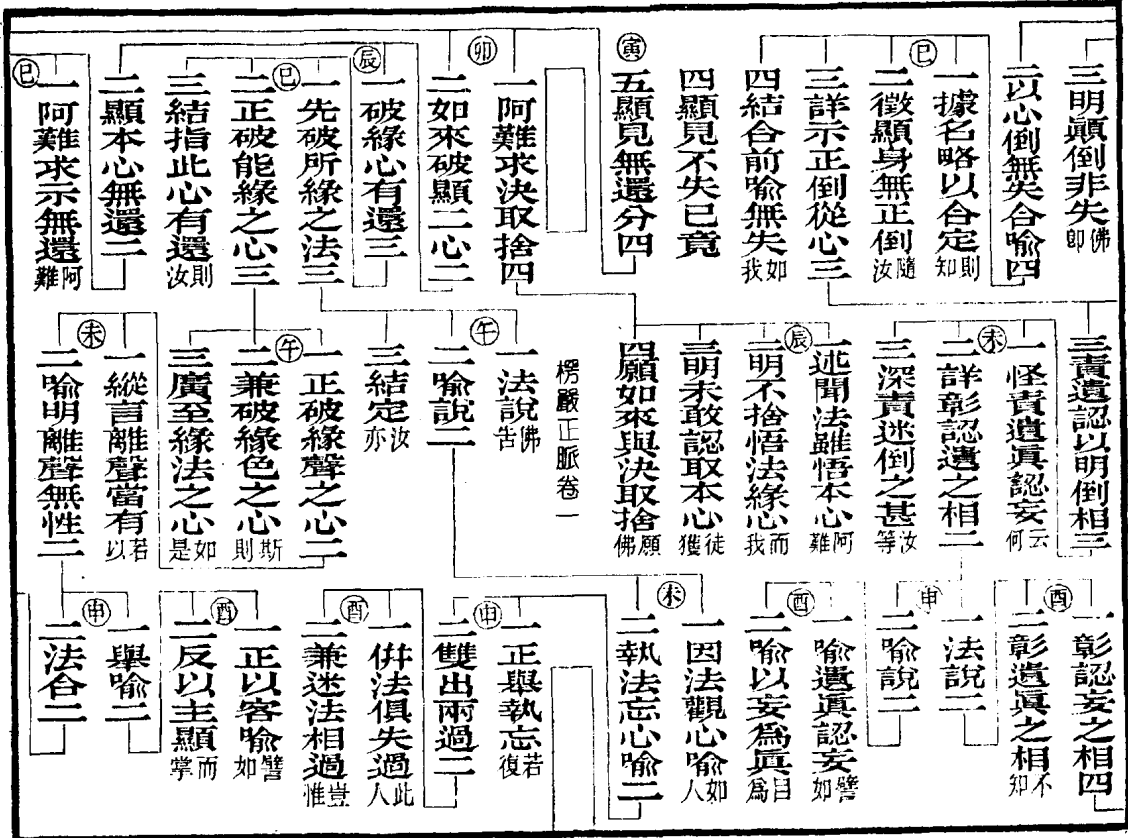 三明顛倒非失佛即
二以心倒無失合喻四
巳
一據名略以合定則知
二徵顯身無正倒隨汝
三詳示正倒從心三
四結合前喻無失如我
四顯見不失已竟
寅
五顯見無還分四
一阿難求決取捨四
卯
二如來破顯二心二
辰
一破緣心有還三
巳
一先破所緣之法三
二正破能緣之心三
三結指此心有還則汝
二顯本心無還二
巳
一阿難求示無還阿難
三責遺認以明倒相三
一怪責遺真認妄云何
未
二詳彰認遺之相二
三深責迷倒之甚汝等
一述聞法雖悟本心阿難
辰
二明不捨悟法緣心而我
三明未敢認取本心徒獲
四願如來與決取捨願佛
楞嚴正脈卷一
一法說佛告
午
二喻說二
三結定汝亦
一正破緣聲之心二
午
二兼破緣色之心斯則
三廣至緣法之心如是
一縱言離聲當有若以
未
二喻明離聲無性二
一彰認妄之相四
酉
二彰遺真之相不知
一法說二
申
二喻說二
一喻遺真認妄譬如
酉
二喻以妄為真目為
一因法觀心喻如人
未
二執法忘心喻二
一正舉執忘若復
申
二雙出兩過二
一併法俱失過此人
酉
二兼迷法相過豈惟
一正以客喻譬如
酉
二反以主顯而掌
一舉喻二
申
二法合二